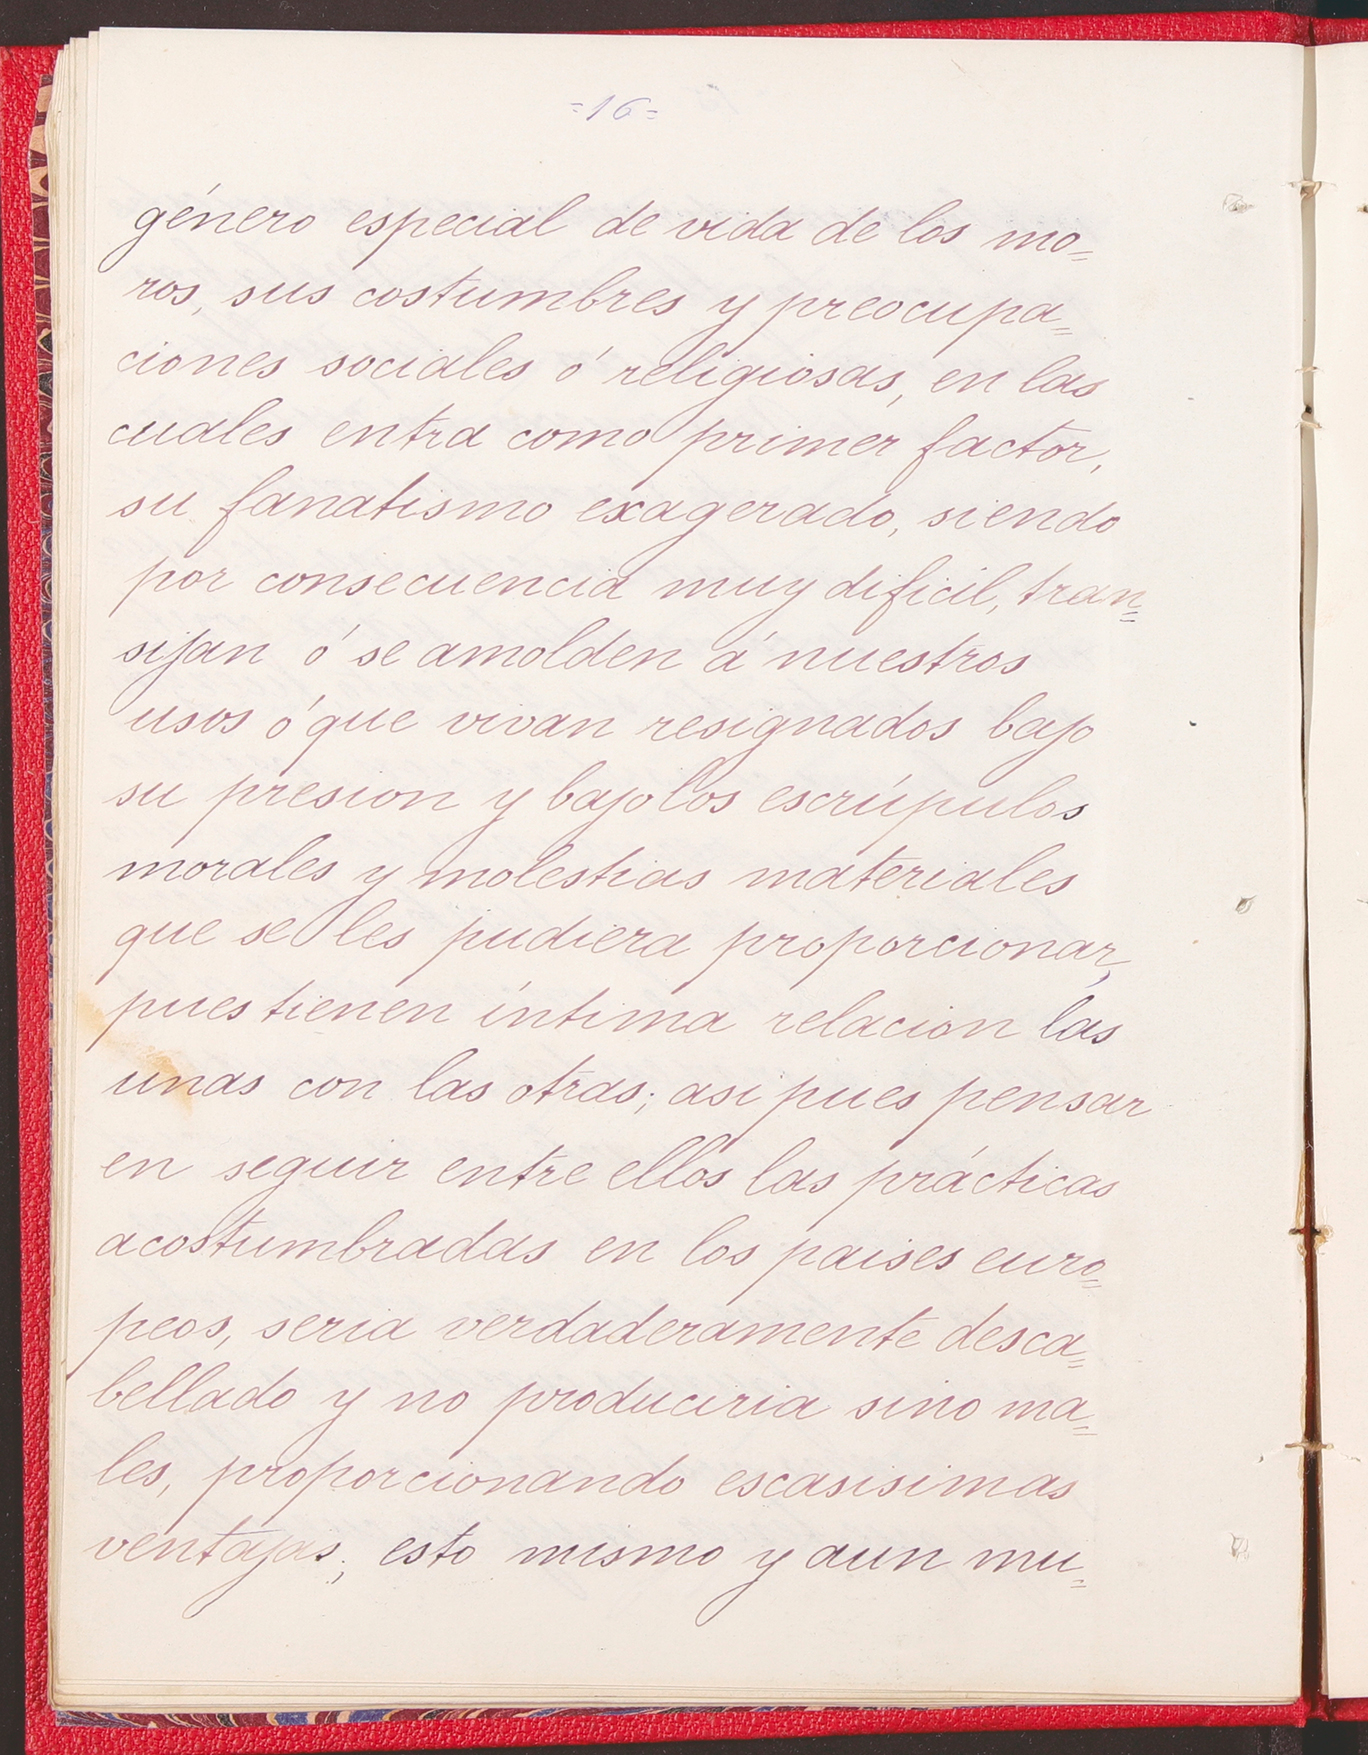 =16=
género especial de vida de los mo=
ros, sus costumbres y preocupa=
ciones sociales ó religiosas, en las
cuales entra como primer factor,
su fanatismo exagerado, siendo
por consecuencia muy dificil, tran=
sijan ó se amolden á nuestros
usos ó que vivan resignados bajo
su presion y bajo los escrúpulos
morales y molestias materiales
que se les pudiera proporcionar,
pues tienen íntima relacion las
unas con las otras; asi pues pensar
en seguir entre ellos las prácticas
acostumbradas en los paises euro=
peos, seria verdaderamente desca=
bellado y no produciria sino ma=
les, proporcionando escasisimas
ventajas; esto mismo y aun mu=